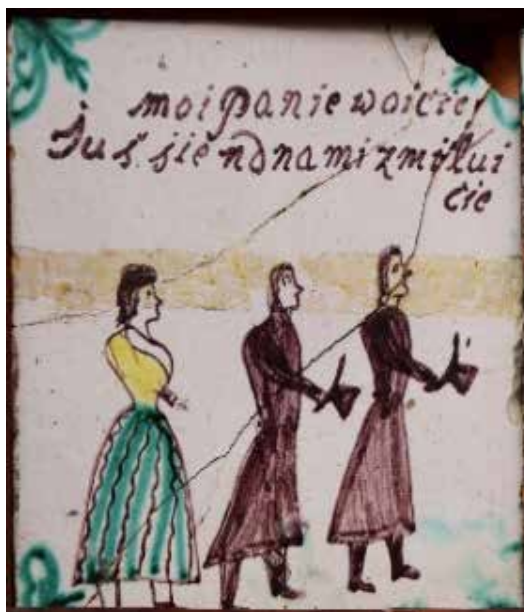 moi Panie woicie
Juś sie ndnami zmiłui
cie